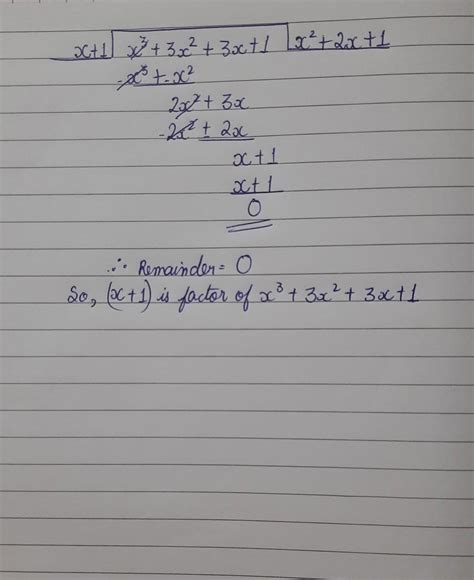 x+1 x³ + 3x² + 3x + 1 x² + 2x + 1
-x³ + -x²
2x² + 3x
-2x² ± 2x
x + 1
x + 1
0
∴ Remainder = 0
So, (x+1) is factor of x³ + 3x² + 3x + 1